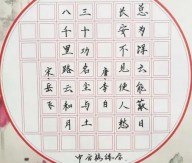 总为浮云能蔽日
长安不见使人愁
唐李白
三十功名尘与土
八千里路云和月
宋岳飞